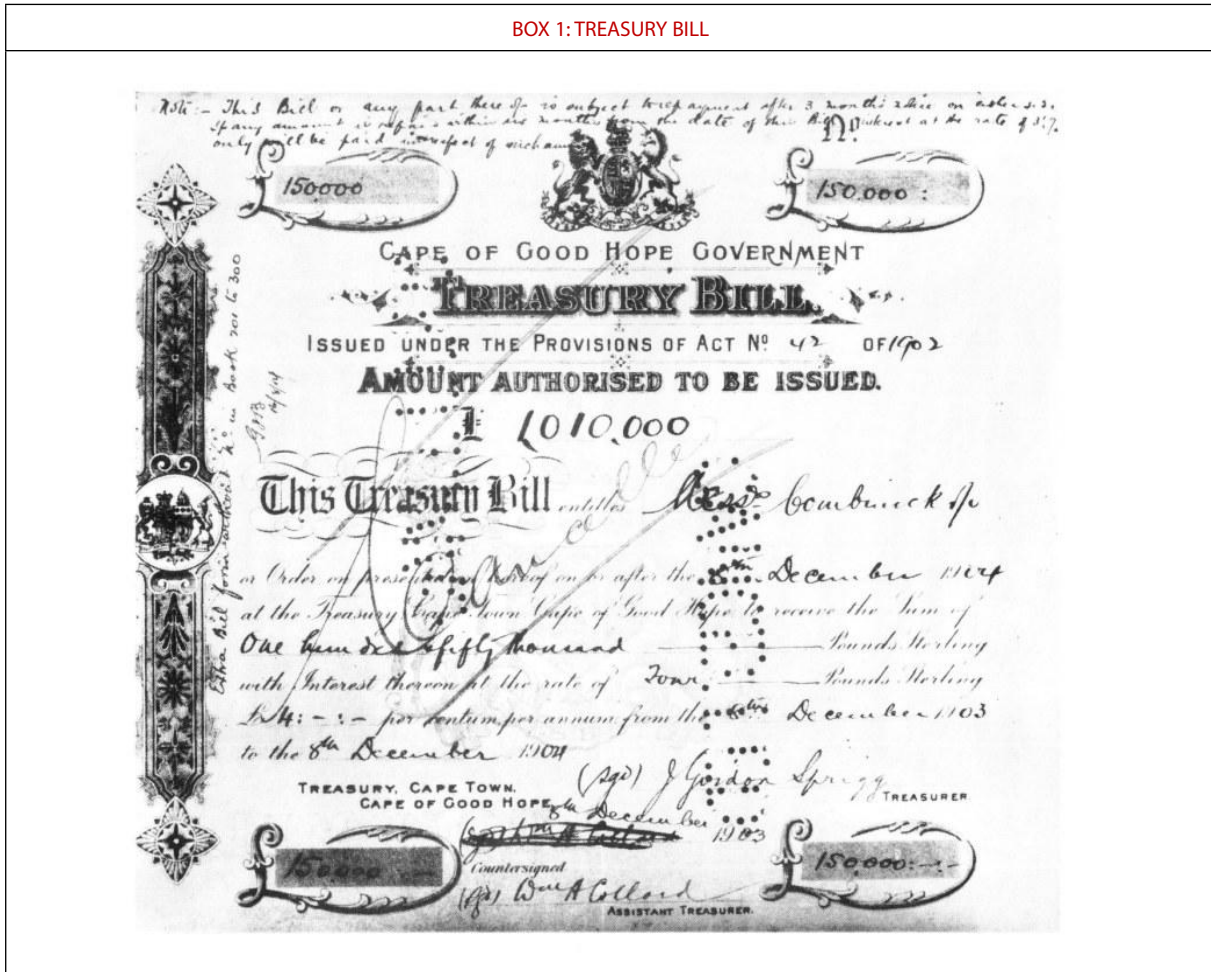 BOX 1: TREASURY BILL
Note:- This Bill or any part thereof is subject to repayment after 3 months
If any amount is within months from the date of this Bill interest at the rate of
only will be paid in respect of
£ 150000
£ 150,000
CAPE OF GOOD HOPE GOVERNMENT
TREASURY BILL
ISSUED UNDER THE PROVISIONS OF ACT Nº 42 OF 1902
AMOUNT AUTHORISED TO BE ISSUED.
£ 1010,000
This Treasury Bill entitles Messrs Combrinck
or Order on presentation hereof on or after the 8th December 1904
at the Treasury Cape Town Cape of Good Hope to receive the Sum of
One hundred & fifty thousand Pounds Sterling
with Interest thereon at the rate of Four Pounds Sterling
£ 4:-:- per centum per annum from the 8th December 1903
to the 8th December 1904
(sgd) J Gordon Sprigg
TREASURER
TREASURY, CAPE TOWN,
CAPE OF GOOD HOPE, 8th December 1903
Countersigned
(sgd) Wm A Collard
ASSISTANT TREASURER.
£ 150,000
£ 150,000:-:-
Extra Bill form without No in book 201 to 300
Cancelled